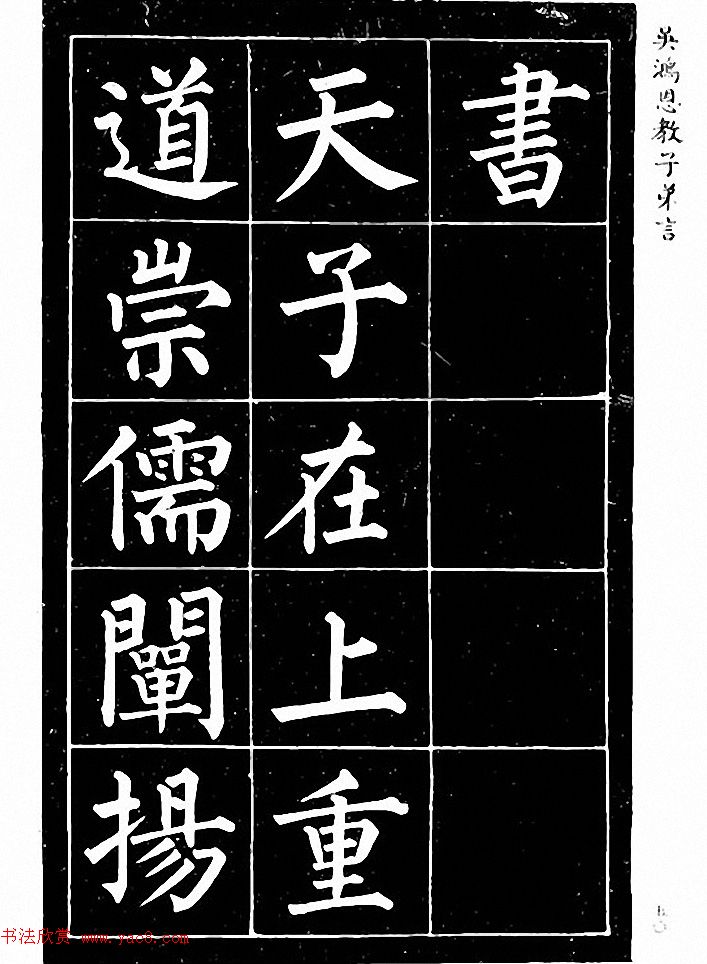 吴鴻恩教子弟言
書
天子在上重
道崇儒闡揚
五〇
书法欣赏 www.yac8.com